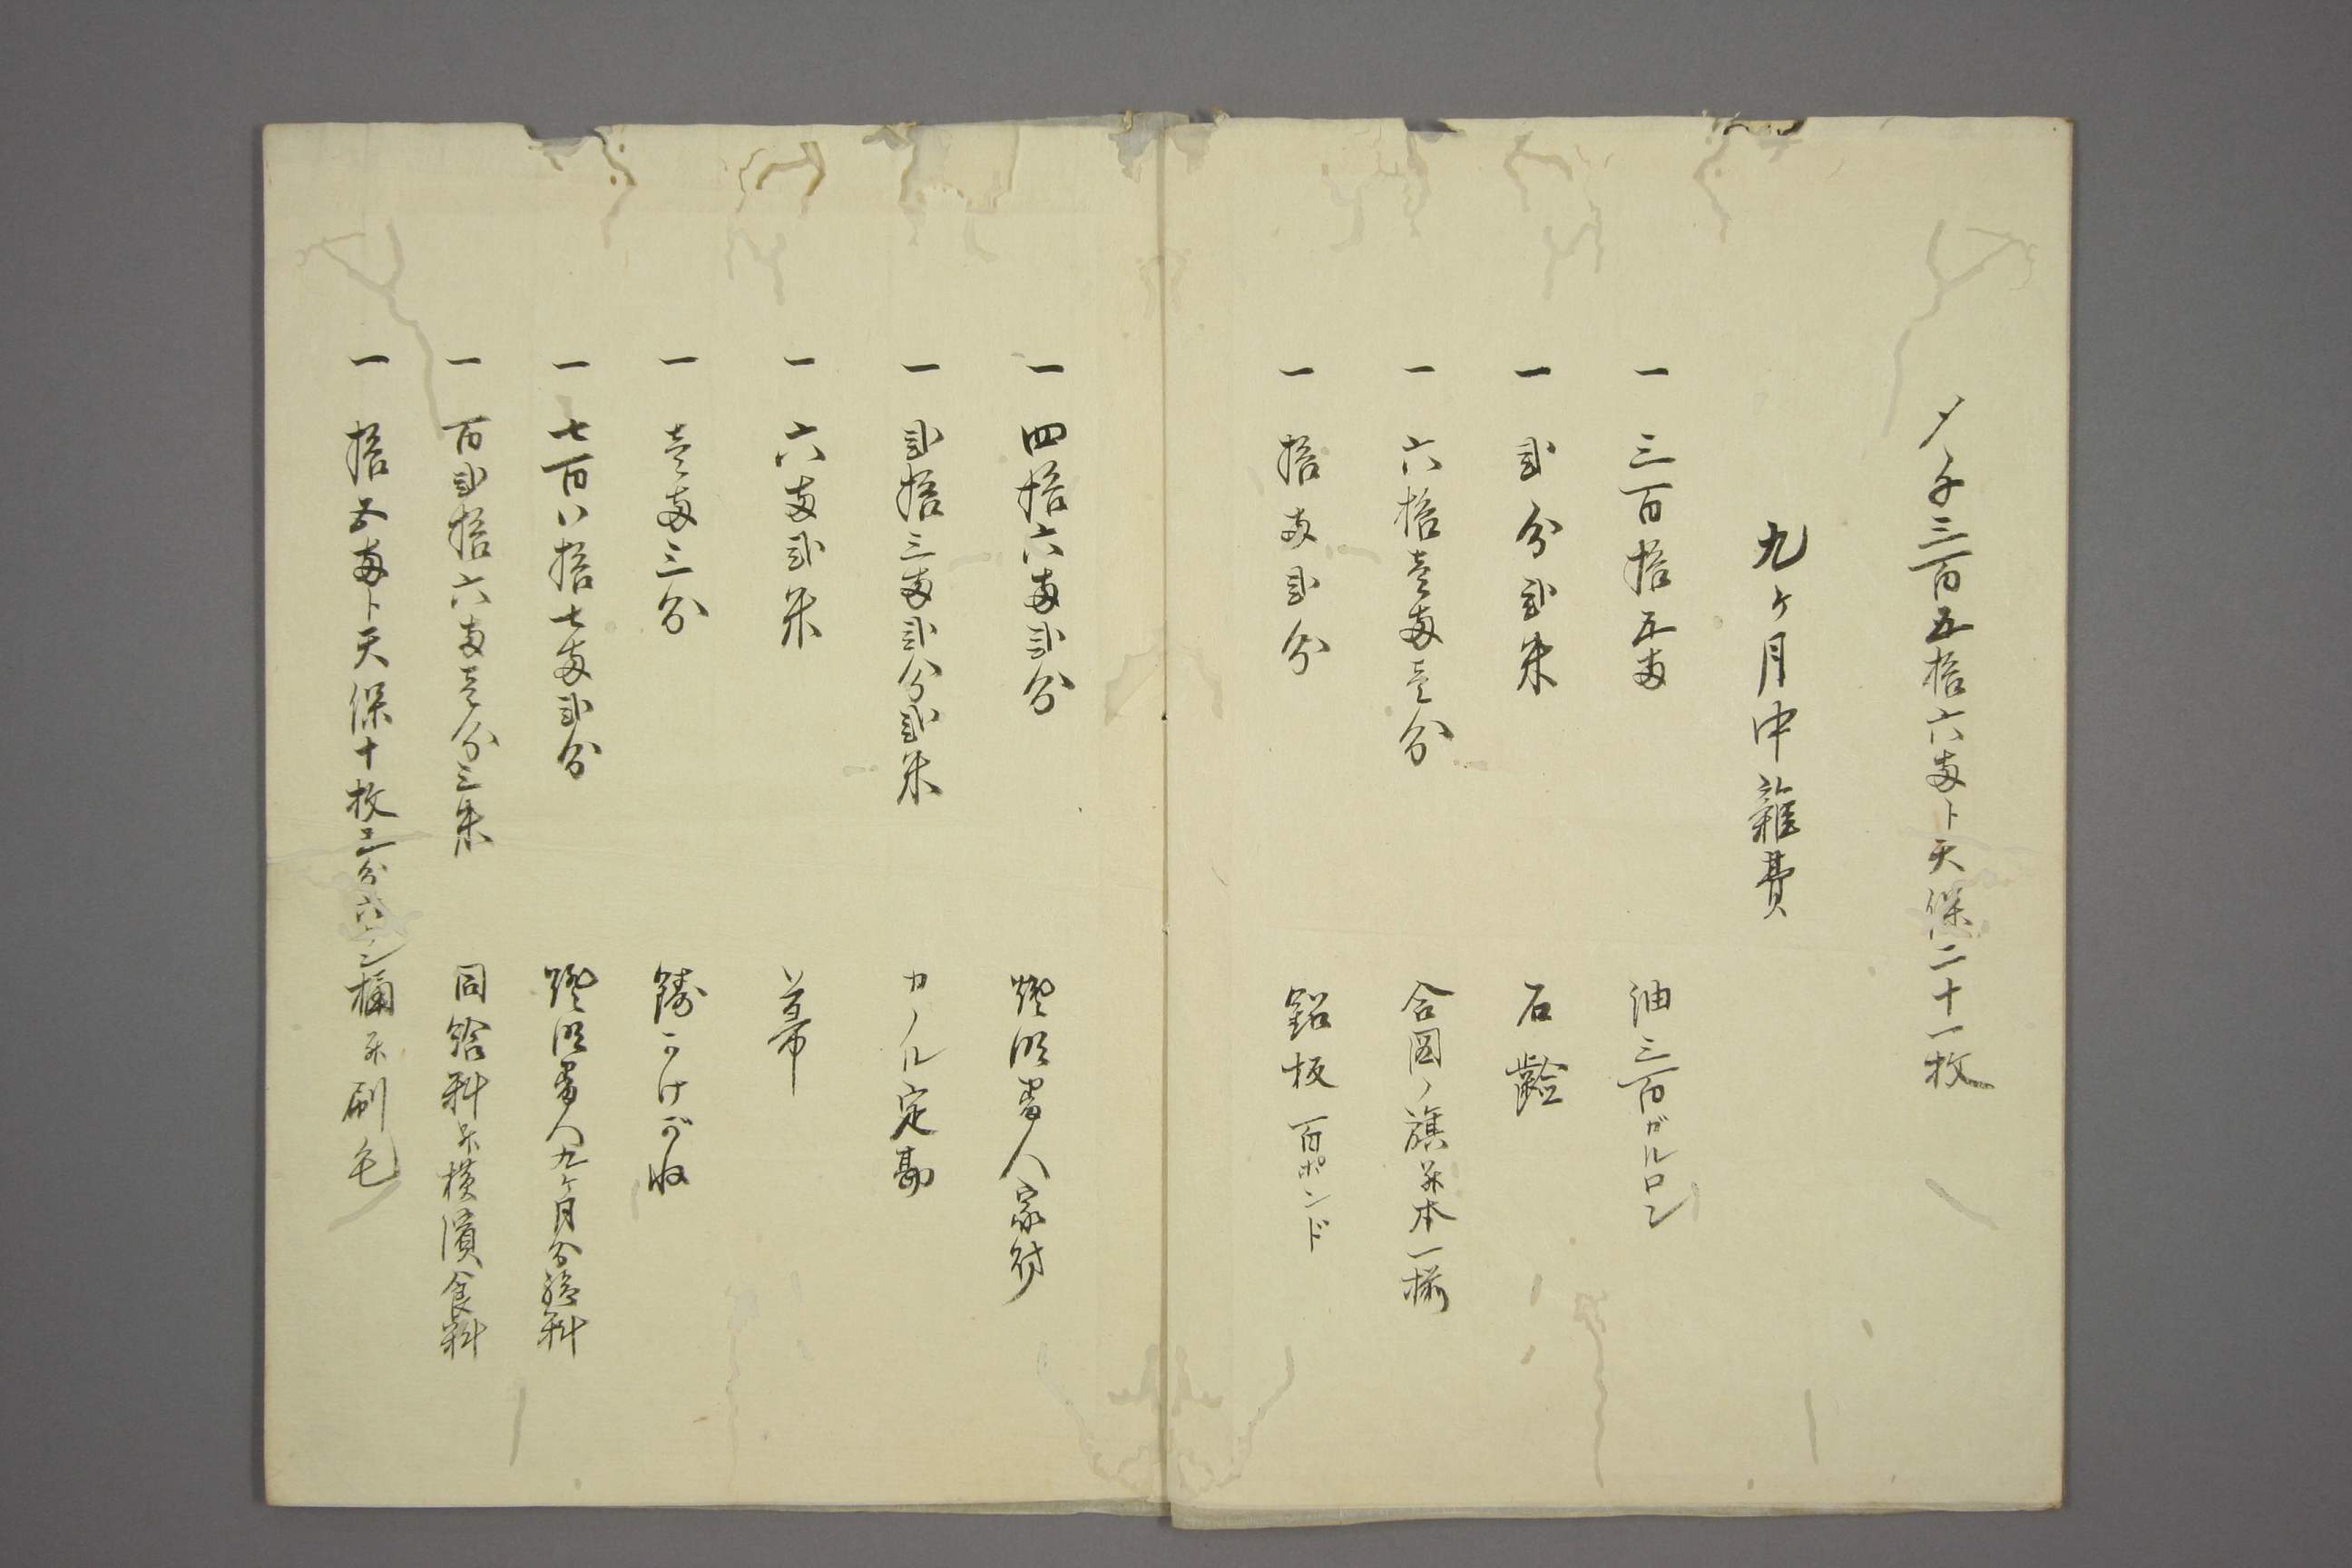 〆千三百五拾六両ト天保二十一枚
九ケ月中雑費
一 三百拾五両 油三百ガルロン
一 弐分弐朱 石鹸
一 六拾壱両壱分 合図ノ旗并本一揃
一 拾両弐分 鉛板百ポンド
一 四拾六両弐分 燈明番人家財
一 弐拾三両弐分弐朱 カノル定勘
一 六両弐朱 幕
一 壱両三分
一 七百八拾七両弐分 燈明番人九ケ月分給料
一 百弐拾六両壱分三朱 同給料并横濱食料
一 拾五両ト天保十枚三分六 桶并刷毛